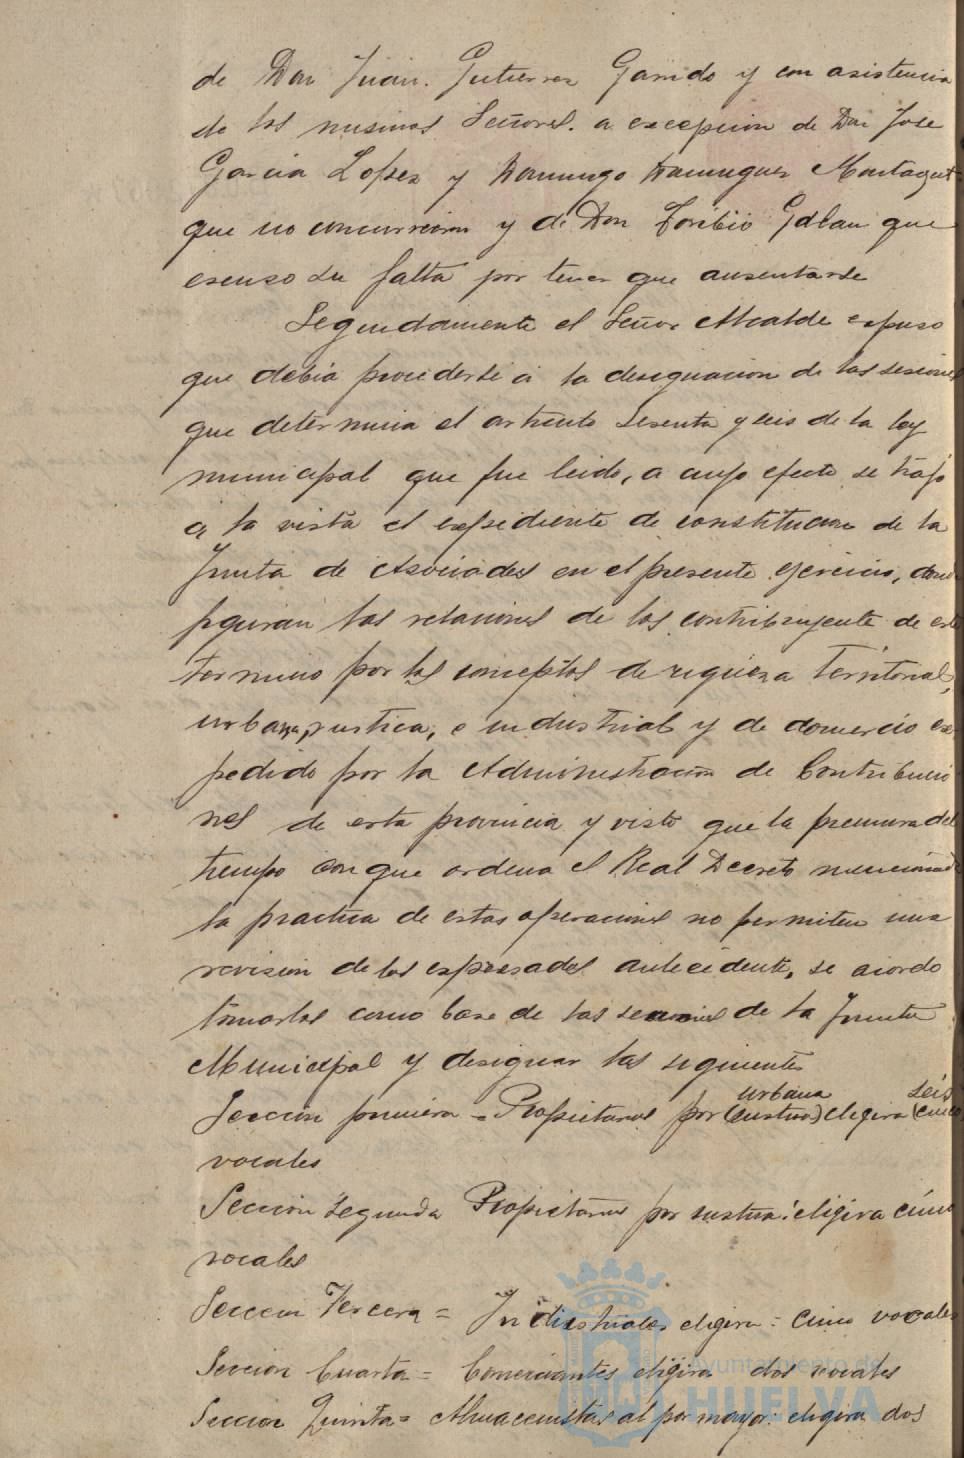 de Don Juan. Gutierrez Garrido y con asistencia
de los mismos Señores. a excepcion de Don Jose
Garcia Lopez y Domingo Dominguez Montagut
que no concurrieron y de Don Toribio Galan que
escuso su falta por tener que ausentarse
Seguidamente el Señor Alcalde espuso
que debia procederse a la designacion de las sesiones
que determina el articulo sesenta y seis de la ley
municipal que fue leido, a cuyo efecto se trajo
a la vista el expediente de constitucion de la
Junta de Asociados en el presente ejercicio, donde
figuran las relaciones de los contribuyente de este
termino por los conceptos de riqueza Territorial,
urbana, rustica, e industrial y de comercio es
pedido por la Administracion de Contribucio
nes de esta provincia y visto que la premura del
tiempo con que ordena el Real Decreto mencionado
la practica de estas operaciones no permiten una
revision de los expresados antecedente, se acordo
tomarlos como base de las secciones de la Junta
Municipal y designar las siguientes
urbana seis
Seccion primera = Propietarios por (rustica) eligira (cinco)
vocales
Seccion segunda Propietarios por rustica: eligira cinco
vocales
Seccion Tercera = Industriales eligira = cinco vocales
Seccion Cuarta = Comerciantes eligira dos vocales
Seccion Quinta = Almacenistas al por mayor: eligira dos
Ayuntamiento de
HUELVA